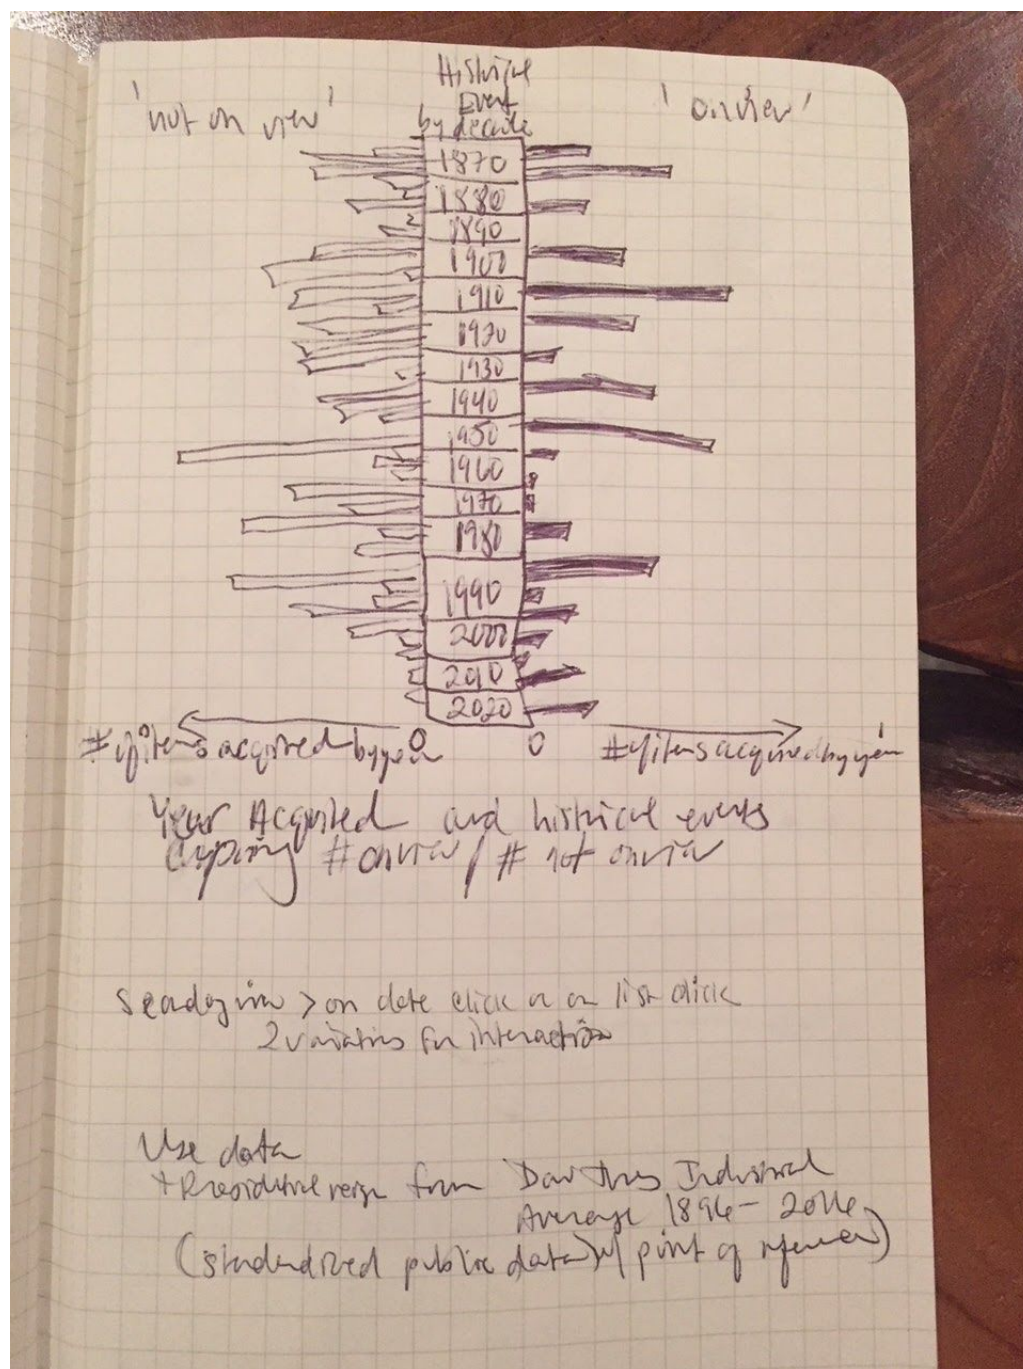 'not on view'
Historical
Event
by decade
'on view'
1870
1880
1890
1900
1910
1920
1930
1940
1950
1960
1970
1980
1990
2000
2010
2020
# of items acquired by year
0
0
# of items acquired by year
Year Acquired and historical events
# on view / # not on view
> on date click or on list click
2 variations for interaction
Use data
+ Presidential reign from Dow Jones Industrial
Average 1896 - 2016
(standardized public data w/ point of reference)